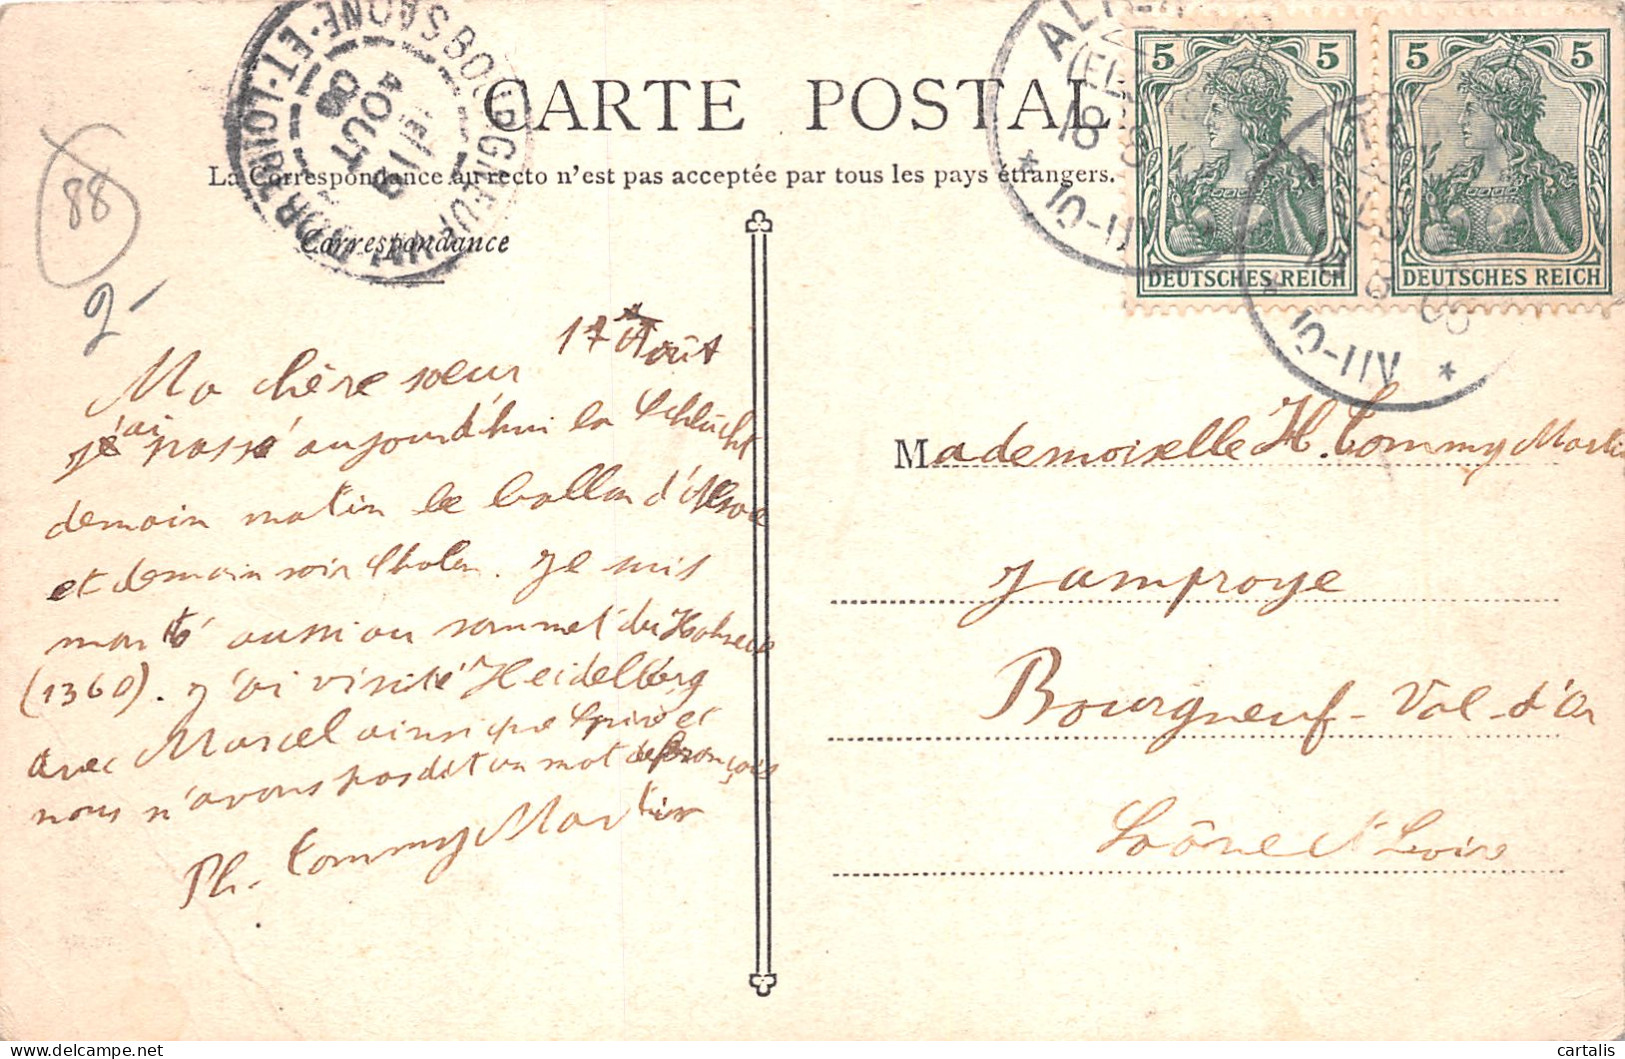 CARTE POSTALE
La Correspondance au recto n'est pas acceptée par tous les pays étrangers.
Correspondance
88
2-
5 5
DEUTSCHES REICH
5 5
DEUTSCHES REICH
17 Août
Ma chère soeur
j'ai passé aujourd'hui la Schlücht
demain matin le ballon d'Alsace
et demain soir je suis
monté aussi au sommet du Hohneck
(1360). j'ai visité Heidelberg
avec Marcel ainsi que Spire et
nous n'avons pas dit un mot de français
Ph. Tommy Martin
Mademoiselle H. Tommy Martin
Jamproye
Bourgneuf-Val-d'Or
Saône & Loire
cartalis